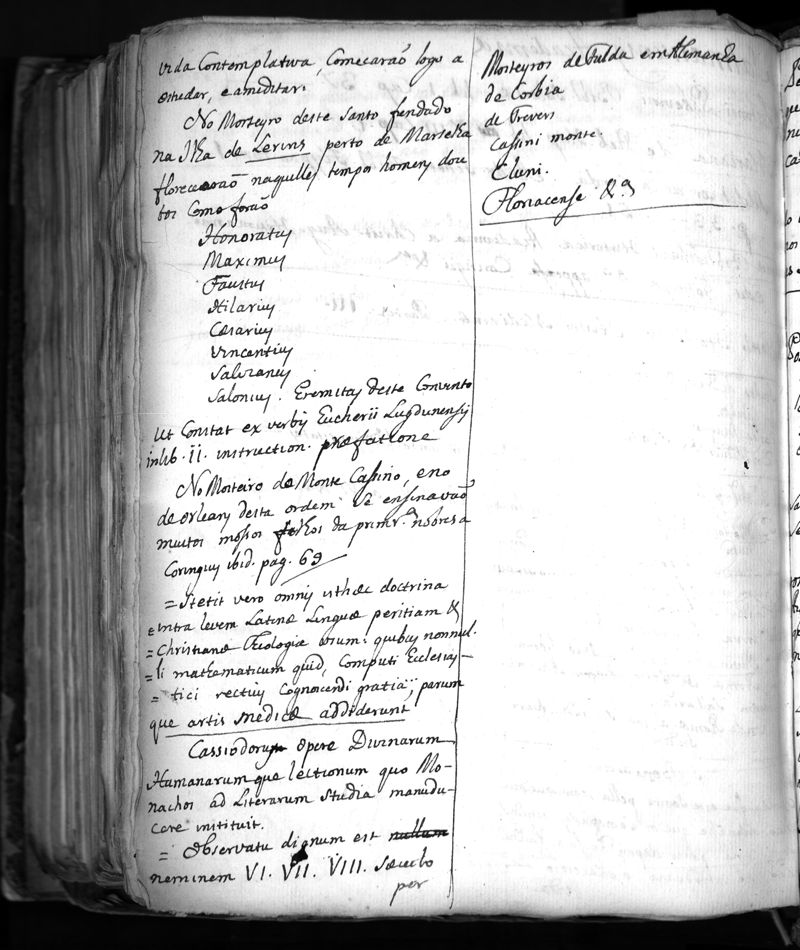 vida Contemplativa, Comecaraõ logo a
esthudar, e a meditar.
No Mosteyro deste santo fundado
na Ilha de Lerins perto de Marselha
floreceraõ naquelles tempos homens dou
tos Como foraõ
Honoratus
Maximus
Faustus
Hilarius
Cæsarius
Vincentius
Salvianus
Salonius. Eremitas deste Convento
Ut Constat ex verbis Eucherii Lugdunensis
in lib. II. instruction. præfatione
No Mosteiro de Monte Cassino, e no
de Orleans desta ordem se ensinavaõ
muitos mossos filhos da primr.ª nobresa
Coringius ibid. pag. 69
= Stetit vero omnis isthæc doctrina
= intra levem Latinæ Linguæ peritiam &
= Christianæ Theologiæ usum: quibus nonnul-
= li mathematicum quid, Computi Ecclesias-
= tici rectius Cognoscendi gratia; parum
que artis medicæ addiderunt
Cassiodorus opere Divinarum
Humanarum que lectionum quo Mo-
nachos ad Literarum studia manudu-
cere instituit.
= Observatu dignum est nullum
neminem VI. VII. VIII. sæculo
per
Mosteyros de Fulda em Alemanha
de Corbia
de Trevers
Cassini monte.
Cluni.
Floriacense &ª